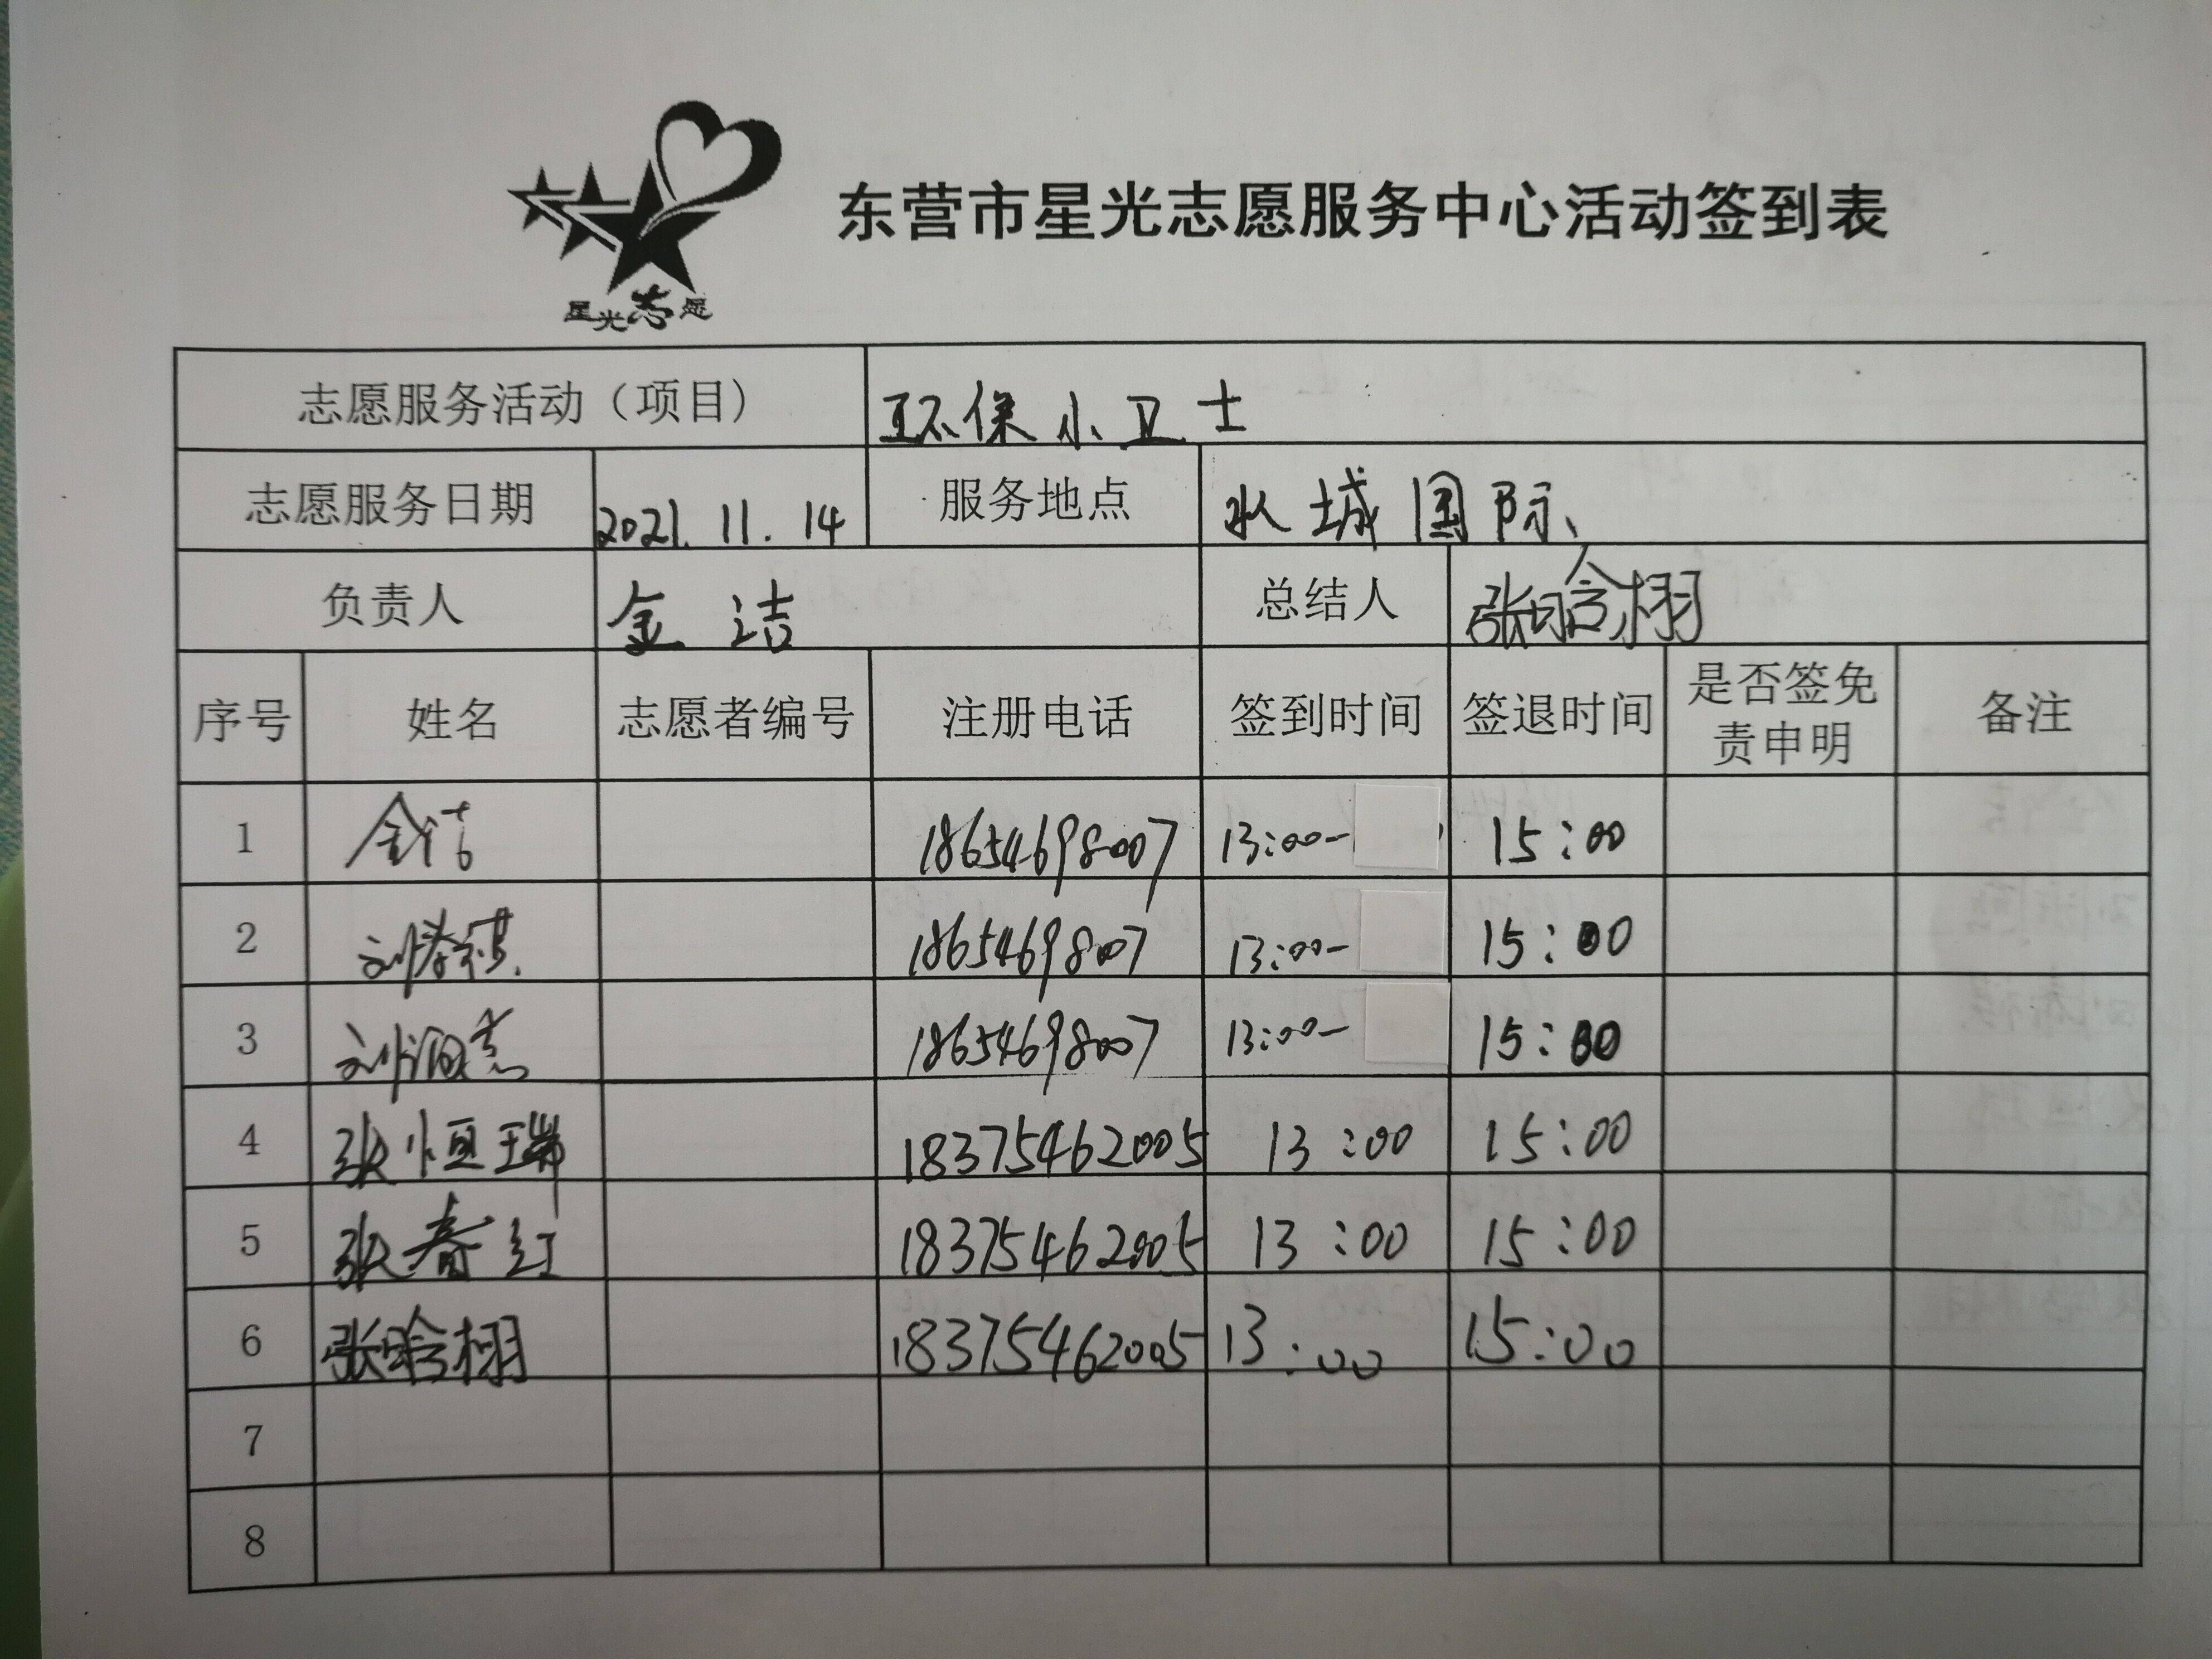 星光志愿
东营市星光志愿服务中心活动签到表
志愿服务活动（项目） 环保小卫士
志愿服务日期 2021.11.14 服务地点 水城国际
负责人 金洁 总结人 张晗栩
序号 姓名 志愿者编号 注册电话 签到时间 签退时间 是否签免责申明 备注
1 金洁 18654698007 13:00- 15:00
2 1865469807 13:00- 15:00
3 18654698007 13:00- 15:00
4 张恒瑞 18375462005 13:00 15:00
5 张春红 18375462005 13:00 15:00
6 张晗栩 18375462005 13:00 15:00
7
8